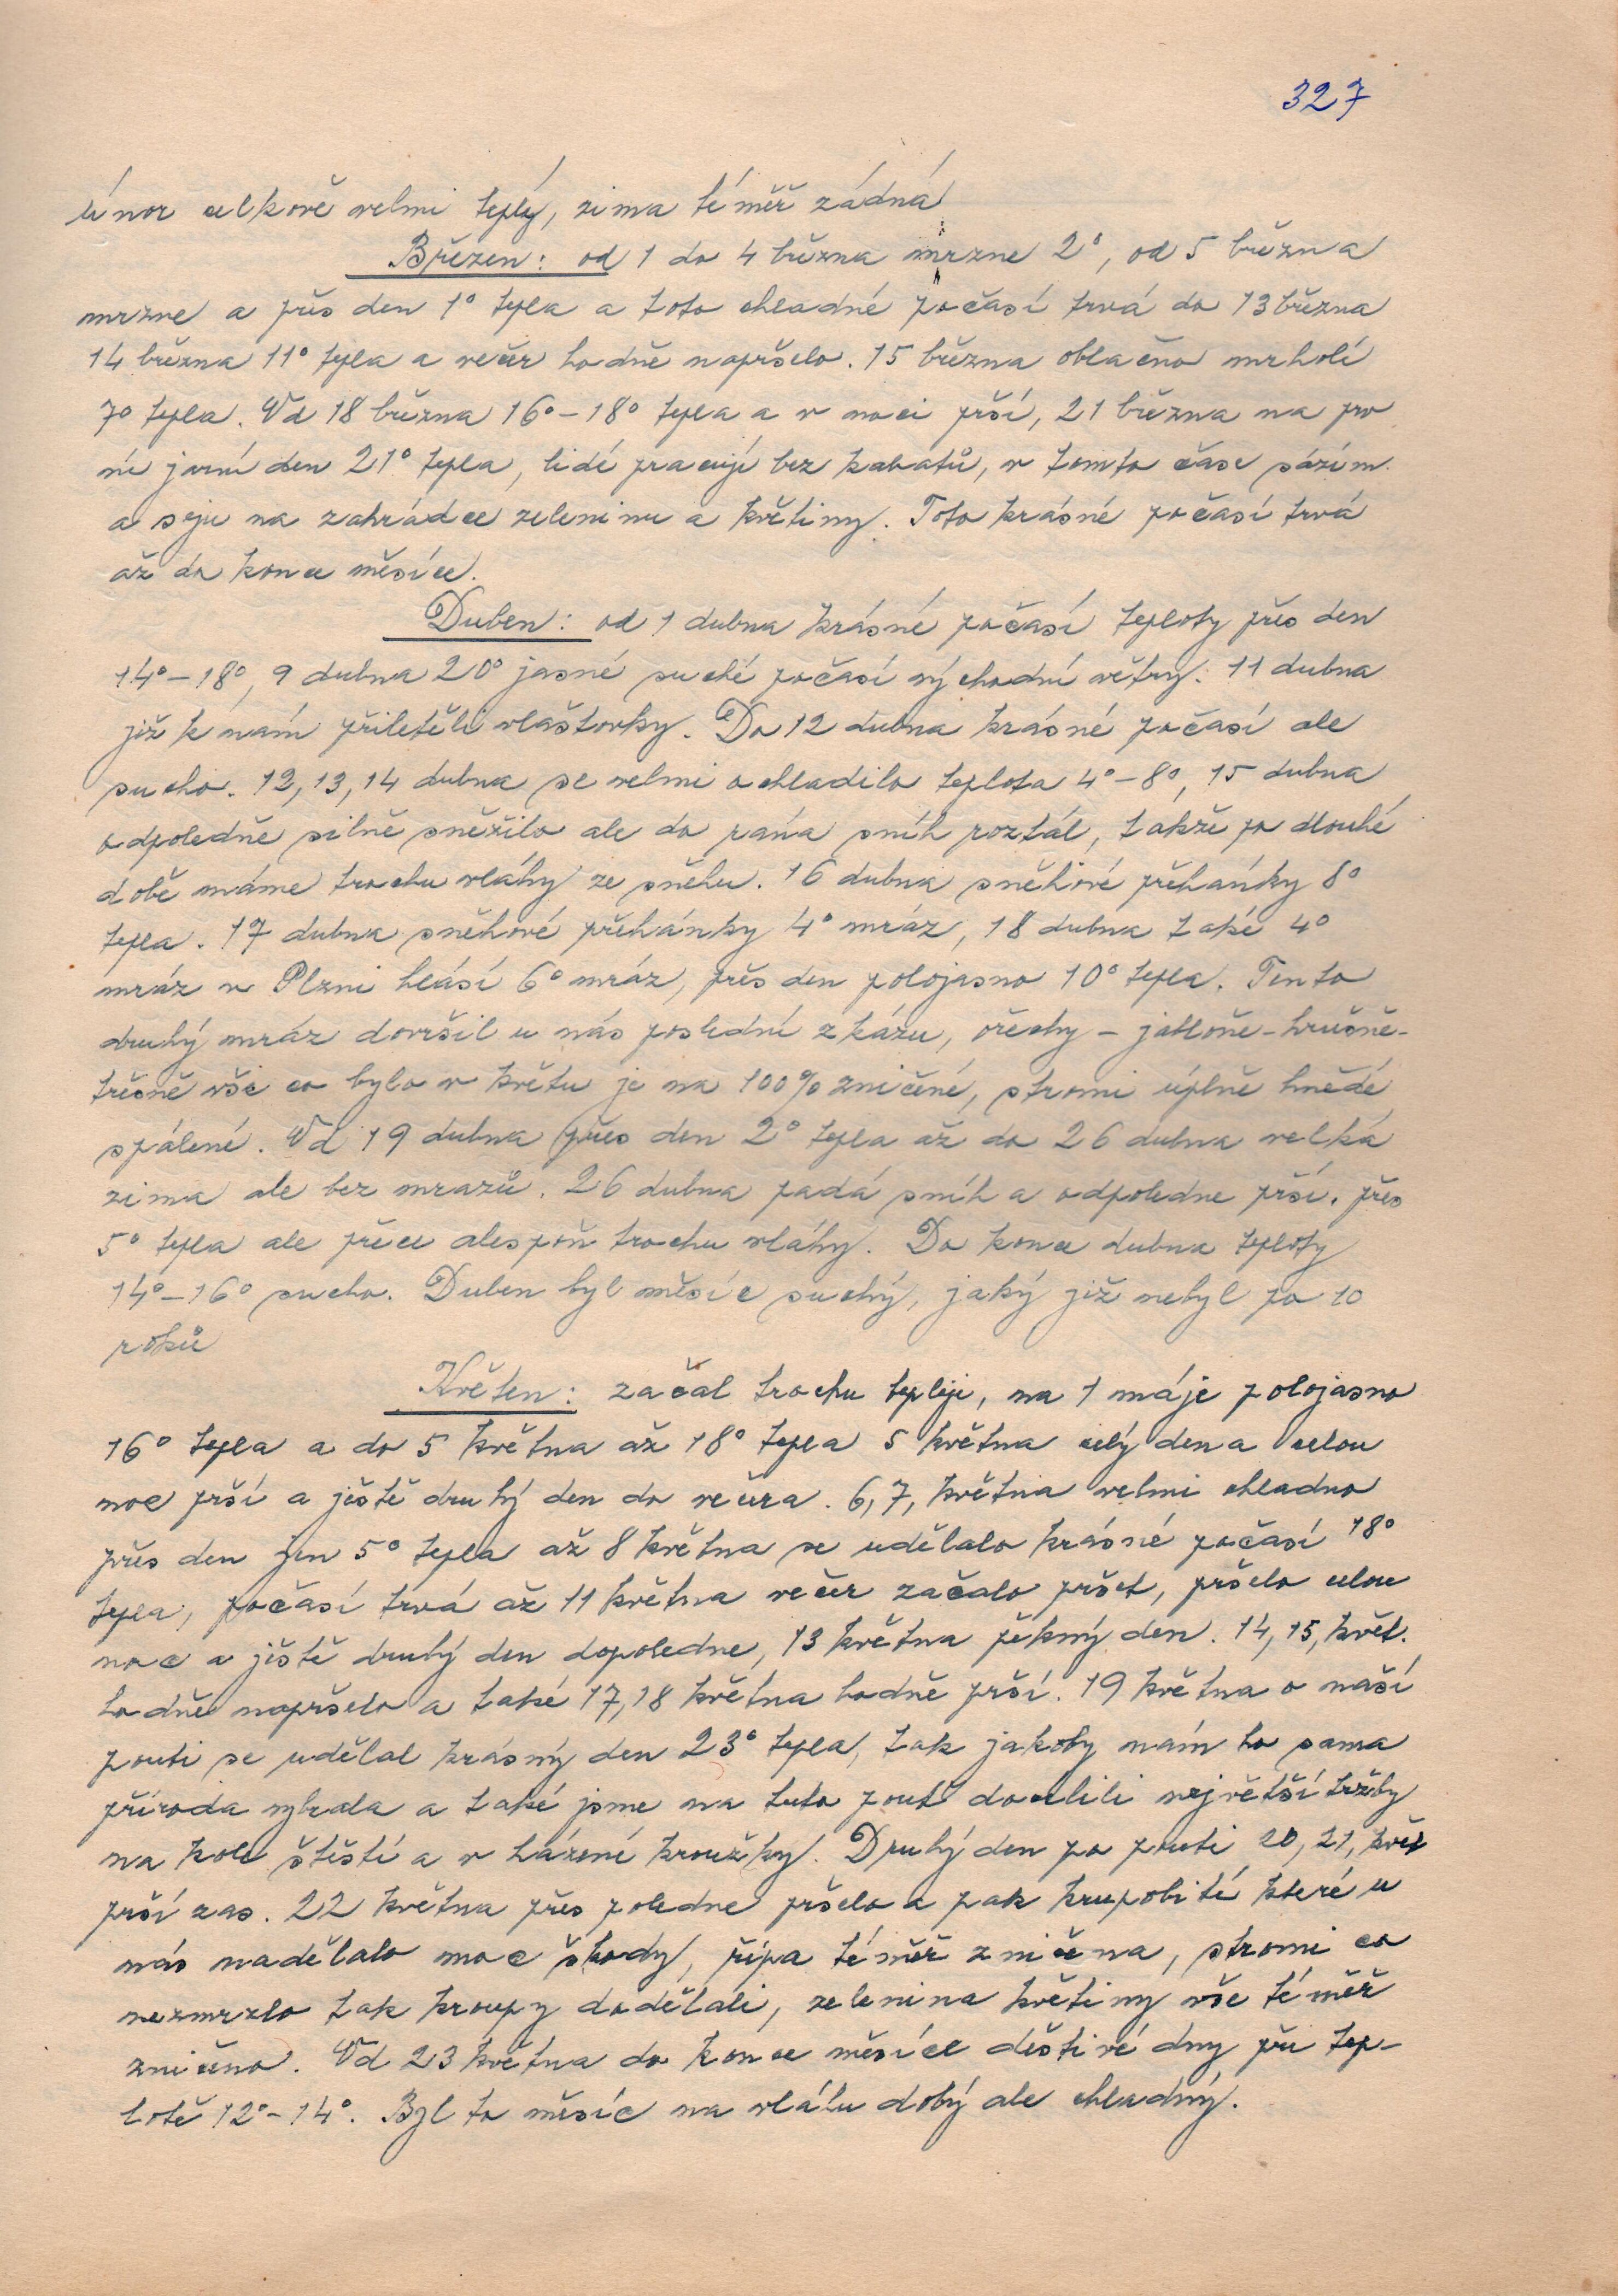 327
únor celkově velmi teplý, zima téměř žádná
Březen: od 1 do 4 března mrzne 2°, od 5 března
mrzne a přes den 1° tepla a toto chladné počasí trvá do 13 března
14 března 11° tepla a večer hodně napršelo. 15 března oblačno mrholí
7° tepla. Od 18 března 16°-18° tepla a v noci prší, 21 března na prv
ní jarní den 21° tepla, lidé pracují bez kabátů, v tomto čase sázím
a seju na zahrádce zeleninu a květiny. Toto krásné počasí trvá
až do konce měsíce.
Duben: od 1 dubna krásné počasí teploty přes den
14°-18°, 9 dubna 20° jasné suché počasí východní větry. 11 dubna
již k nám přiletěli vlaštovky. Do 12 dubna krásné počasí ale
sucho. 12, 13, 14 dubna se velmi ochladilo teplota 4°-8°, 15 dubna
odpoledně silně sněžilo ale do rána sníh roztál, takže po dlouhé
době máme trochu vláhy ze sněhu. 16 dubna sněhové přehánky 8°
tepla. 17 dubna sněhové přehánky 4° mráz, 18 dubna také 4°
mráz v Plzni hlásí 6° mráz, přes den polojasno 10° tepla. Tento
druhý mráz dovršil u nás poslední zkázu, ořechy - jabloňe - hrušně-
třešně vše co bylo v květu je na 100% zničené, stromi úplně hnědé
spálené. Od 19 dubna přes den 2° tepla až do 26 dubna velká
zima ale bez mrazů. 26 dubna padá sníh a odpoledne prší. přes
5° tepla ale přece alespoň trochu vláhy. Do konce dubna teploty
14°-16° sucho. Duben byl měsíc suchý, jaký již nebyl po 10
roků
Květen: začal trochu tepleji, na 1 máje polojasno
16° tepla a do 5 května až 18° tepla 5 května celý den a celou
noc prší a ještě druhý den do večera. 6, 7, května velmi chladno
přes den jen 5° tepla až 8 května se udělalo krásné počasí 18°
tepla, počasí trvá až 11 května večer začalo pršet, pršelo celou
noc a ještě druhý den dopoledne, 13 května pěkný den. 14, 15, květ.
hodně napršelo a také 17, 18 května hodně prší. 19 května o naší
pouti se udělal krásný den 23° tepla, tak jakoby nám to sama
příroda vybrala a také jsme na tuto pouť docílili největší tržby
na kole štěstí a v házení kroužky. Druhý den po pouti 20, 21, květ
prší zas. 22 května přes poledne pršelo a pak krupobití které u
nás nadělalo moc škody, řípa téměř zničena, stromi co
nezmrzlo tak kroupy dodělali, zelenina květiny vše téměř
zničeno. Od 23 května do konce měsíce deštivé dny při tep-
lotě 12°-14°. Byl to měsíc na vláhu dobý ale chladný.